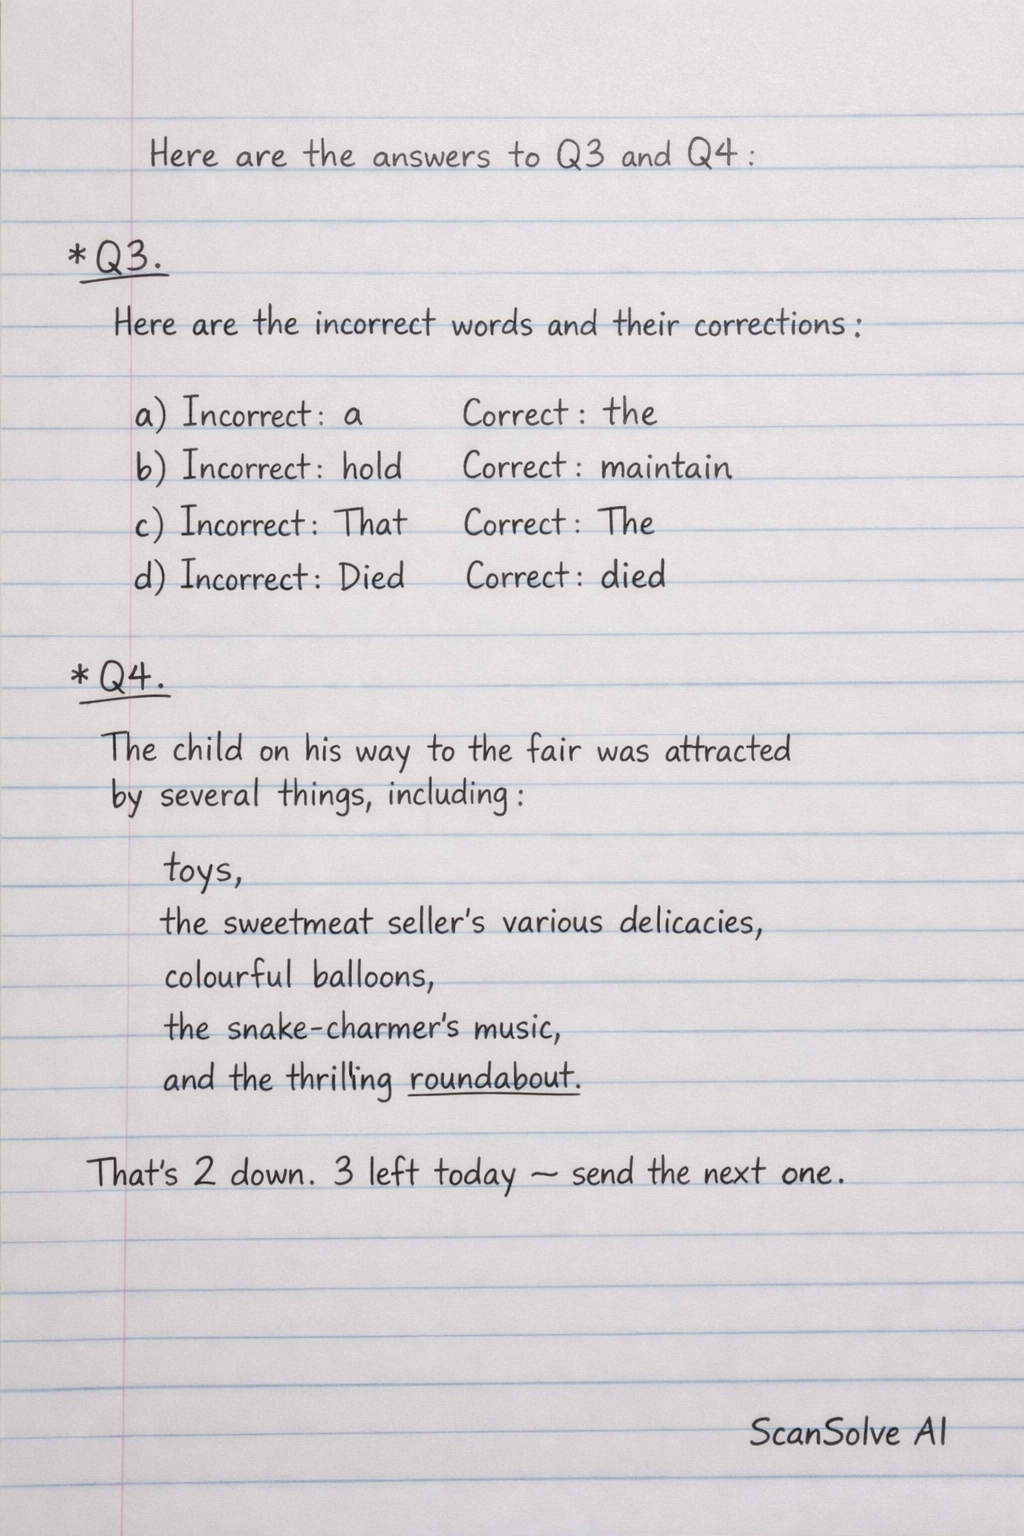 Here are the answers to Q3 and Q4:
* Q3.
Here are the incorrect words and their corrections:
a) Incorrect: a Correct: the
b) Incorrect: hold Correct: maintain
c) Incorrect: That Correct: The
d) Incorrect: Died Correct: died
* Q4.
The child on his way to the fair was attracted
by several things, including:
toys,
the sweetmeat seller's various delicacies,
colourful balloons,
the snake-charmer's music,
and the thrilling roundabout.
That's 2 down. 3 left today — send the next one.
ScanSolve AI